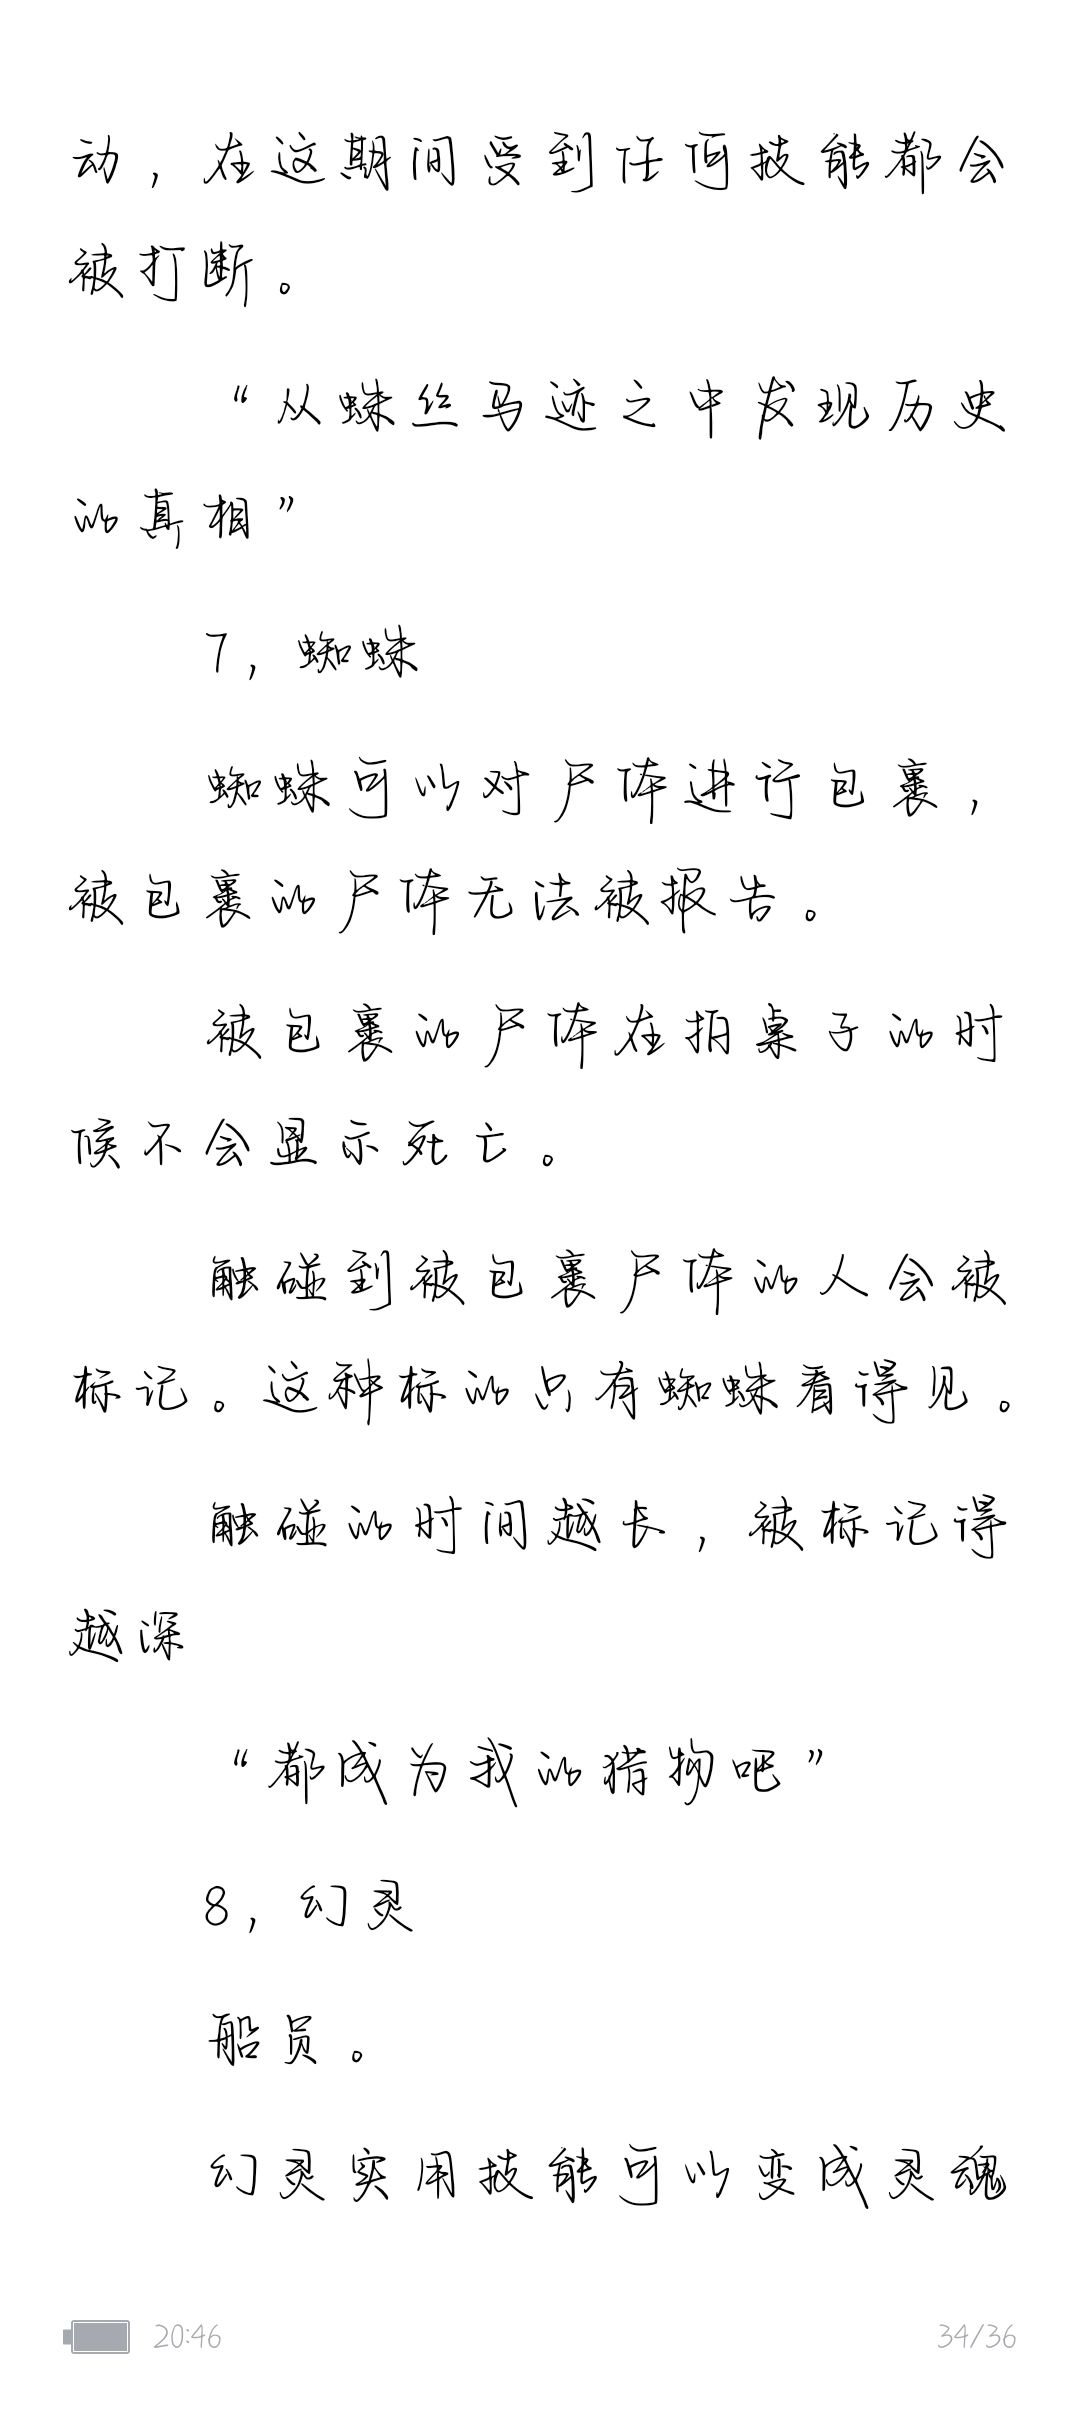 动，在这期间受到任何技能都会
被打断。
“从蛛丝马迹之中发现历史
的真相”
7，蜘蛛
蜘蛛可以对尸体进行包裹，
被包裹的尸体无法被报告。
被包裹的尸体在拍桌子的时
候不会显示死亡。
触碰到被包裹尸体的人会被
标记。这种标的只有蜘蛛看得见。
触碰的时间越长，被标记得
越深
“都成为我的猎物吧”
8，幻灵
船员。
幻灵实用技能可以变成灵魂
20:46
34/36